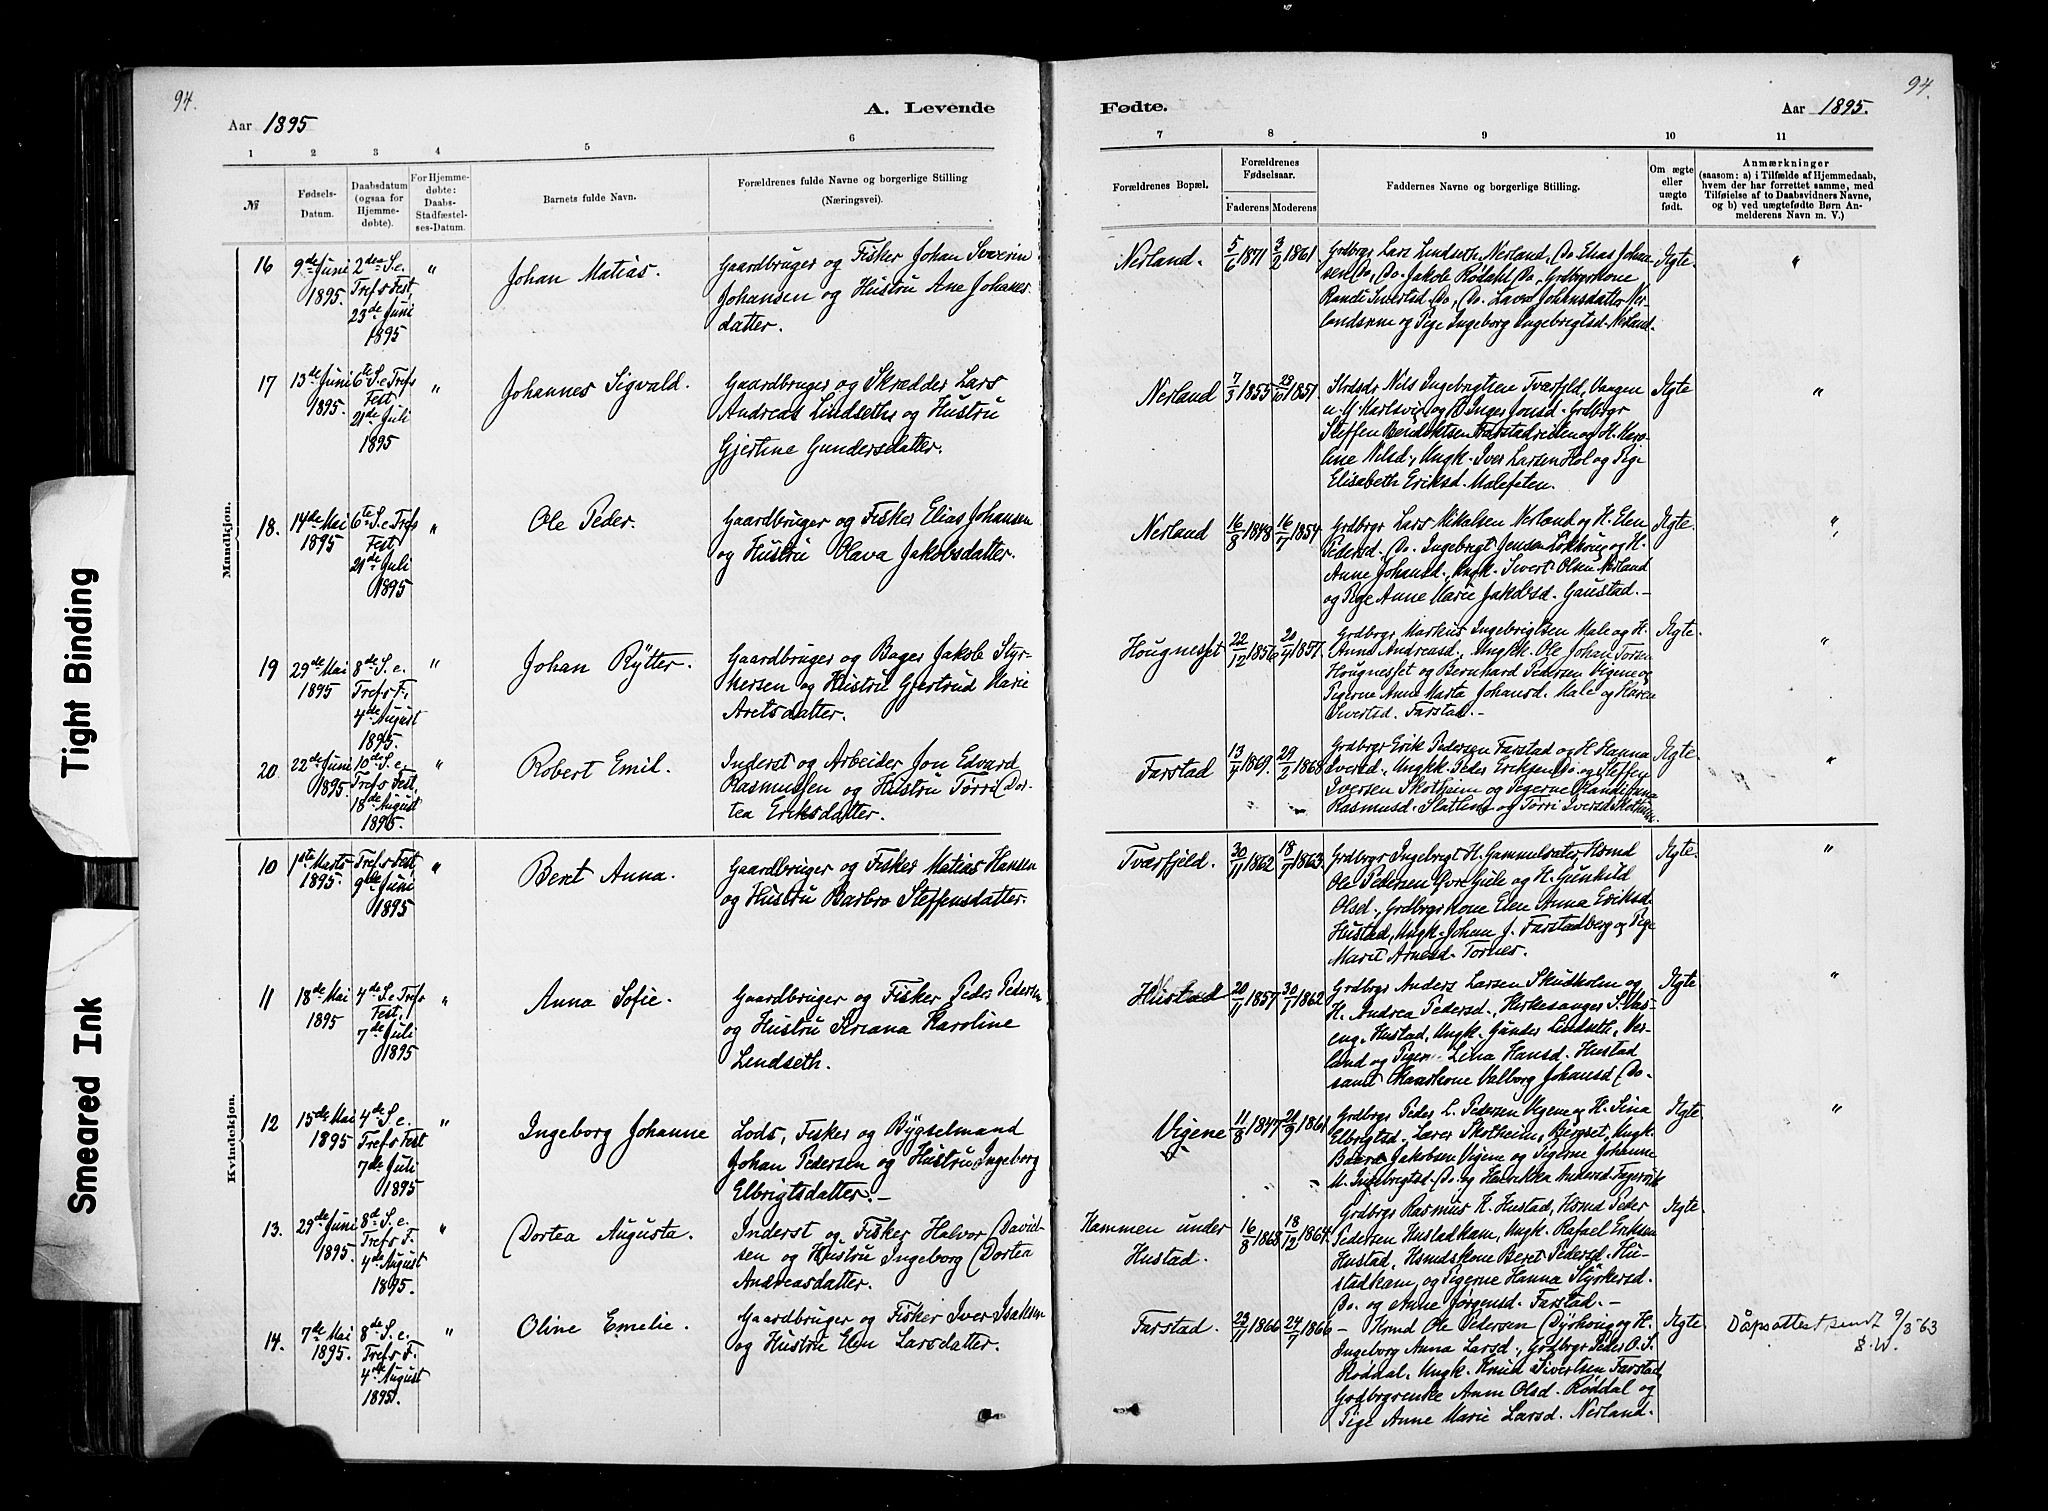 94.
94.
A. Levende
Fødte.
Aar 1895
Aar 1895.
1 2 3 4 5 6
7 8 9 10 11
№
Fødsels-
Datum.
Daabsdatum
(ogsaa for
Hjemme-
døbte).
For Hjemme-
døbte:
Daabs-
Stadfæstel-
ses-Datum.
Barnets fulde Navn.
Forældrenes fulde Navne og borgerlige Stilling
(Næringsvei).
Forældrenes Bopæl.
Forældrenes
Fødselsaar.
Faderens Moderens
Faddernes Navne og borgerlige Stilling.
Om ægte
eller
uægte
født.
Anmærkninger
(saasom: a) i Tilfælde af Hjemmedaab,
hvem der har forrettet samme, med
Tilføielse af to Daabsvidners Navne,
og b) ved uægtefødte Børn An-
melderens Navn m. V.)
Mandkjøn.
16
9de Juni
1895.
2den S. e.
Tref s Fest,
23de Juni
1895
"
Johan Matias.
Gaardbruger og Fisker Johan Severin
Johansen og Hustru Ane Johanes-
datter.
Nerland.
5/6 1871
3/2 1861
Grdbrgr Lars Lindseth Nerland, Do. Elias Johan-
sen Do, Do. Jakob Rødahl Do, Grdbgrkone
Randi Sivertsd Do, Do. Lava Johansdatter Ner-
landsrem og Pige Ingeborg Ingebrigtsd. Nerland.
Ægte
"
17
13de Juni
1895.
6te S. e Trefs
Fest
21de Juli
1895
"
Johannes Sigvald.
Gaardbruger og Skrædder Lars
Andreas Lindseth og Hustru
Gjertine Gundersdatter.
Nerland
7/3 1855
1851.
Nils Ingebrigtsen Tværfjeld, Vangen
Inger Jonsd. Grdbrgr
Steffen Bendiktsen og H. Karo-
line Nilsd., Ungk. Iver Larsen Hol og Pige
Elisabeth Eriksd. Malefeten.
Ægte
"
18.
14de Mai
1895
6te S. e Trefs
Fest
21de Juli
1895
"
Ole Peder.
Gaardbruger og Fisker Elias Johansen
og Hustru Olava Jakobsdatter.
Nerland
16/8 1848
16/7 1854
Grdbrgr Lars Mikalsen Nerland og H. Elen
Pedersd. Do. Ingebrigt Jensen Løkhaug og H.
Anne Johansd., Ungk. Sivert Olsen Nerland
og Pige Anne Marie Jakobsd. Gaustad.—
Ægte
"
19
29de Mai
1895
8de S. e.
Trefs F.,
4de August
1895.
"
Johan Rytter.
Gaardbruger og Bager Jakob Styr-
kersen og Hustru Gjertrud Marie
Aretsdatter.
Hougneset
22/12 1856
1857.
Grdbrgr Markus Ingebrigtsen Male og H.
Anne Andreasd., Ungkk. Ole Johan Torsen
Hougneset og Bernhard Pedersen Vigene og
Pigerne Anne Marta Johansd. Male og Karen
Sivertsd. Farstad.—
Ægte
"
20.
22de Juni
1895.
10de S. e.
Trefs Fest,
18de August
1895.
"
Robert Emil.
Inderst og Arbeider Jon Edvard
Rasmussen og Hustru Torri Dor-
tea Eriksdatter.
Farstad
13/4 1869.
29/2 1868
Grdbrgr Erik Pedersen Farstad og H. Hanna
Iversd., Ungkk. Peder Eriksen Do. og Steffen
Iversen Skotheim og Pigerne Randi Anna
Rasmusd. Slatlem og Torri Iversd. Skotheim.
Ægte
"
Kvindekjøn.
10
1ste Marts
1895.
Trefs Fest,
9de Juni
1895
"
Beret Anna.
Gaardbruger og Fisker Matias Hansen
og Hustru Barbro Steffensdatter.
Tværfjeld.
30/11 1862
18/9 1863.
Grdbrgr Ingebrigt H. Gammelsæter, Hsmd
Ole Pedersen Gule og H. Gunhild
Olsd., Grdbrgrkone Elen Anna Eriksd.
Hustad, Ungk. Johan J. Farstadberg og Pige
Marit Arnesd. Tornes.
Ægte
"
11
18de Mai
1895
4de S. e Trefs
Fest,
7de Juli
1895
"
Anna Sofie.
Gaardbruger og Fisker Peder Pedersen
og Hustru Seriana Karoline
Lindseth.
Hustad
20/11 1857
30/1 1862
Grdbrgr Anders Larsen Skudholm og
H. Andrea Pedersd., Kirkesanger S. Vas-
eng, Hustad, Ungk. Gunder Lindseth, Ner-
land og Pigen Lina Hansd. Hustad
samt Valborg Johansd. Do.
Ægte
"
12
15de Mai
1895
4de S. e.
Trefs Fest
7de Juli
1895
"
Ingeborg Johanne
Lods, Fisker og Bygselmand
Johan Pedersen og Hustru Ingeborg
Elbrigtsdatter.—
Vigene
11/8 1847
1861
Grdbrgr Peder L. Pedersen Vigene og H. Sina
Elbrigtsd. Lærer Skotheim, Berget, Ungk.
Baard Jakobsen Vigene og Pigerne Johanne
M. Ingebrigtsd. Do. og Henrikka Andersd. Fagervik
Ægte
"
13.
29de Juni
1895
8de S. e.
Trefs F.
4de August
1895.
"
Dortea Augusta.
Inderst og Fisker Halvor David-
sen og Hustru Ingeborg Dortea
Andreasdatter.
Kammen under
Hustad.
16/8 1868
18/12 1864
Grdbrgr Rasmus K. Hustad, Hsmd Peder
Pedersen Hustadkam, Ungk. Rafael Eriksen
Hustad, Hsmdskone Beret Pedersd. Hu-
stadkam, og Pigerne Hanna Styrkersd.
Do. og Anne Jørgensd. Farstad.—
Ægte
14.
7de Mai
1895.
8de S. e.
Trefs F.
4de August
1895.
"
Oline Emelie.
Gaardbruger og Fisker Iver Isaksen
og Hustru Elen Larsdatter.
Farstad.
1866
24/7 1866
— Hsmd Ole Pedersen Dyrhoug og H.
Ingeborg Anna Larsd., Grdbrgr Peder O. S.
Røddal, Ungk. Knud Sivertsen Farstad,
Grdbrgrenke Anne Olsd. Røddal og
Pige Anne Marie Larsd. Nerland.
Ægte
Dåpsattest sendt 9/8-63
S.W.
Tight Binding
Smeared Ink